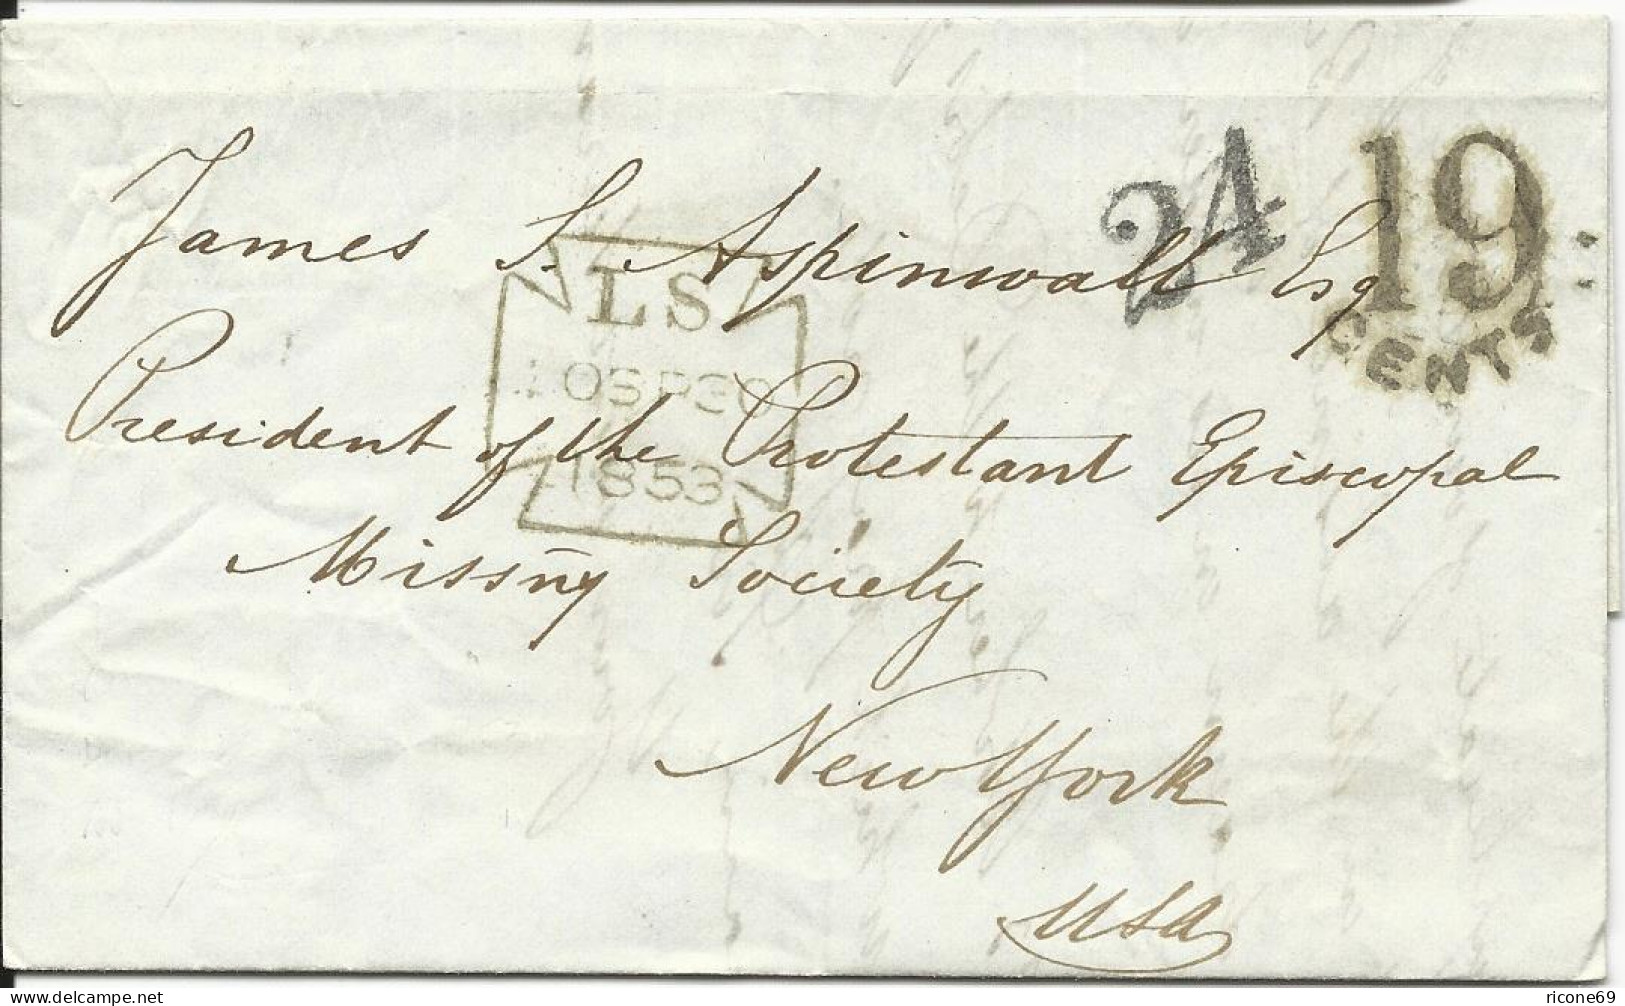 24
19
CENTS
James S. Aspinwall Esq
LS
10SP30
1853
President of the Protestant Episcopal
Missny Society
New York
USA
ricone69